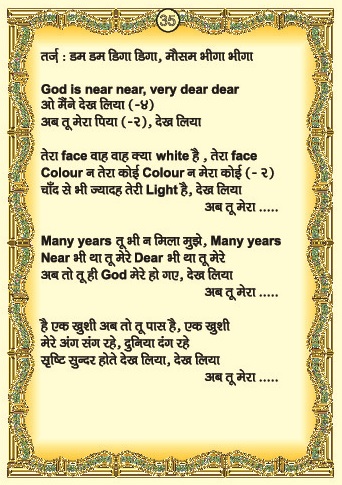 35
तर्ज : डम डम डिगा डिगा, मौसम भीगा भीगा
God is near near, very dear dear
ओ मैंने देख लिया (-४)
अब तू मेरा पिया (-२), देख लिया
तेरा face वाह वाह क्या white है , तेरा face
Colour न तेरा कोई Colour न मेरा कोई (- २)
चाँद से भी ज्यादह तेरी Light है, देख लिया
अब तू मेरा .....
Many years तू भी न मिला मुझे, Many years
Near भी था तू मेरे Dear भी था तू मेरे
अब तो तू ही God मेरे हो गए, देख लिया
अब तू मेरा .....
है एक खुशी अब तो तू पास है, एक खुशी
मेरे अंग संग रहे, दुनिया दंग रहे
सृष्टि सुन्दर होते देख लिया, देख लिया
अब तू मेरा .....